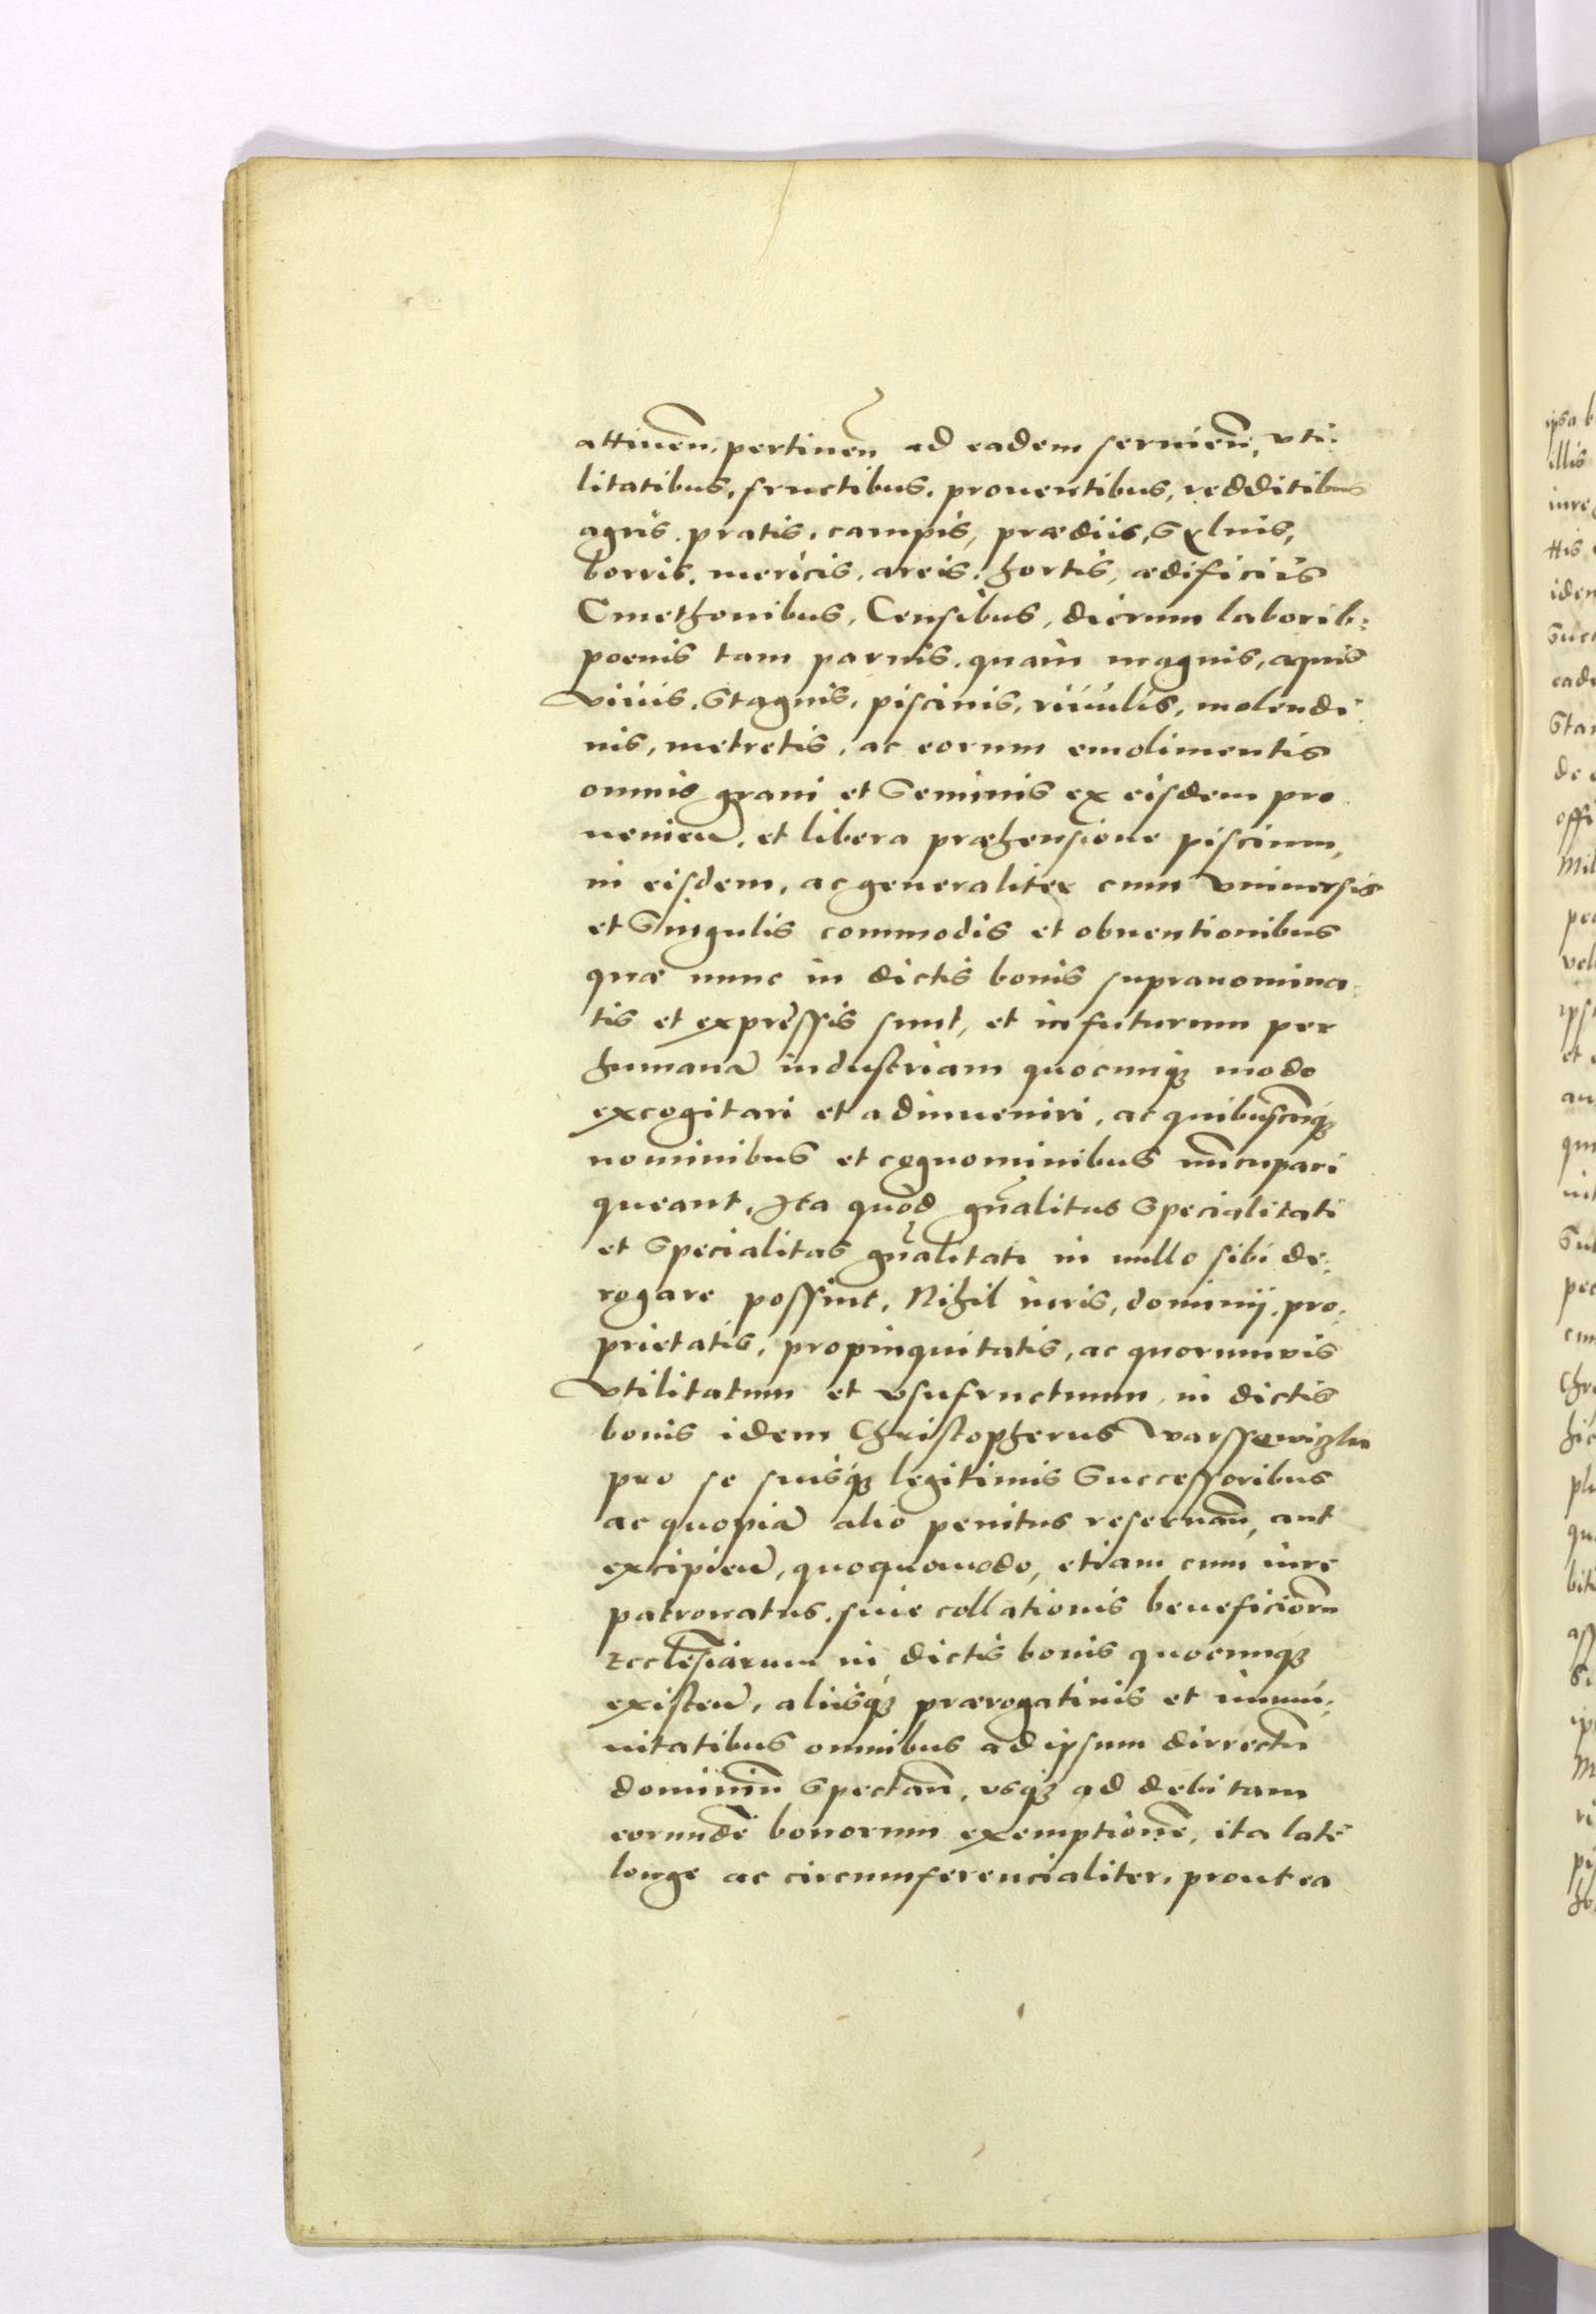 attinen̄, pertinen̄ ad eadem seruien̄, vti-
litatibus, fructibus, prouentibus, redditibus
agris, pratis, campis, prædiis, Syluis,
borris, mericis, areis, hortis, ædificiis
Cmethonibus, Censibus, dierum laborib:
poenis tam paruis, quàm magnis, aquis
viuis, Stagnis, piscinis, riuulis, molendi-
nis, metretis, ac eorum emolimentis
omnis grani et Seminis ex eisdem pro
uenien̄, et libera præhensione piscium,
in eisdem, ac generaliter cum vniuersis
et Singulis commodis et obuentionibus
quæ nunc in dictis bonis supranomina-
tis et expressis sunt, et in futurum per
humanā industriam quocunq; modo
excogitari et adinueniri, ac quibuscūq;
nominibus et cognominibus nūcupari
queant, Ita quòd gn̄alitas Specialitati
et Specialitas gn̄alitati in nullo sibi de-
rogare possint, Nihil iuris, dominij, pro-
prietatis, propinquitatis, ac quorumvis
vtilitatum et vsufructuum in dictis
bonis idem Christopherus Warssewiczky
pro se suisq; legitimis Successoribus
ac quopiā alio penitus reseruan̄, aut
excipien̄, quoquomodo, etiam cum iure
patronatus, siue collationis beneficiorū
Ecclesiarum in dictis bonis quocunq;
existen̄, aliisq; prærogatiuis et immu-
nitatibus omnibus ad ipsum dirrectū
dominiū Spectan̄, vsq; ad debitam
eorundē bonorum exemptionē, ita latè
longe ac circumferencialiter, prout ea